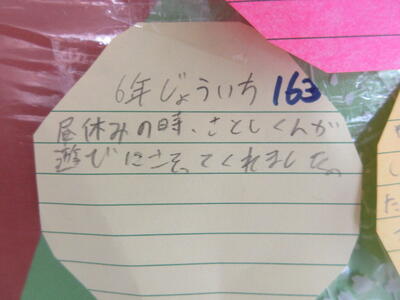 6年じょういち 163
昼休みの時、さとしくんが
遊びにさそってくれました。